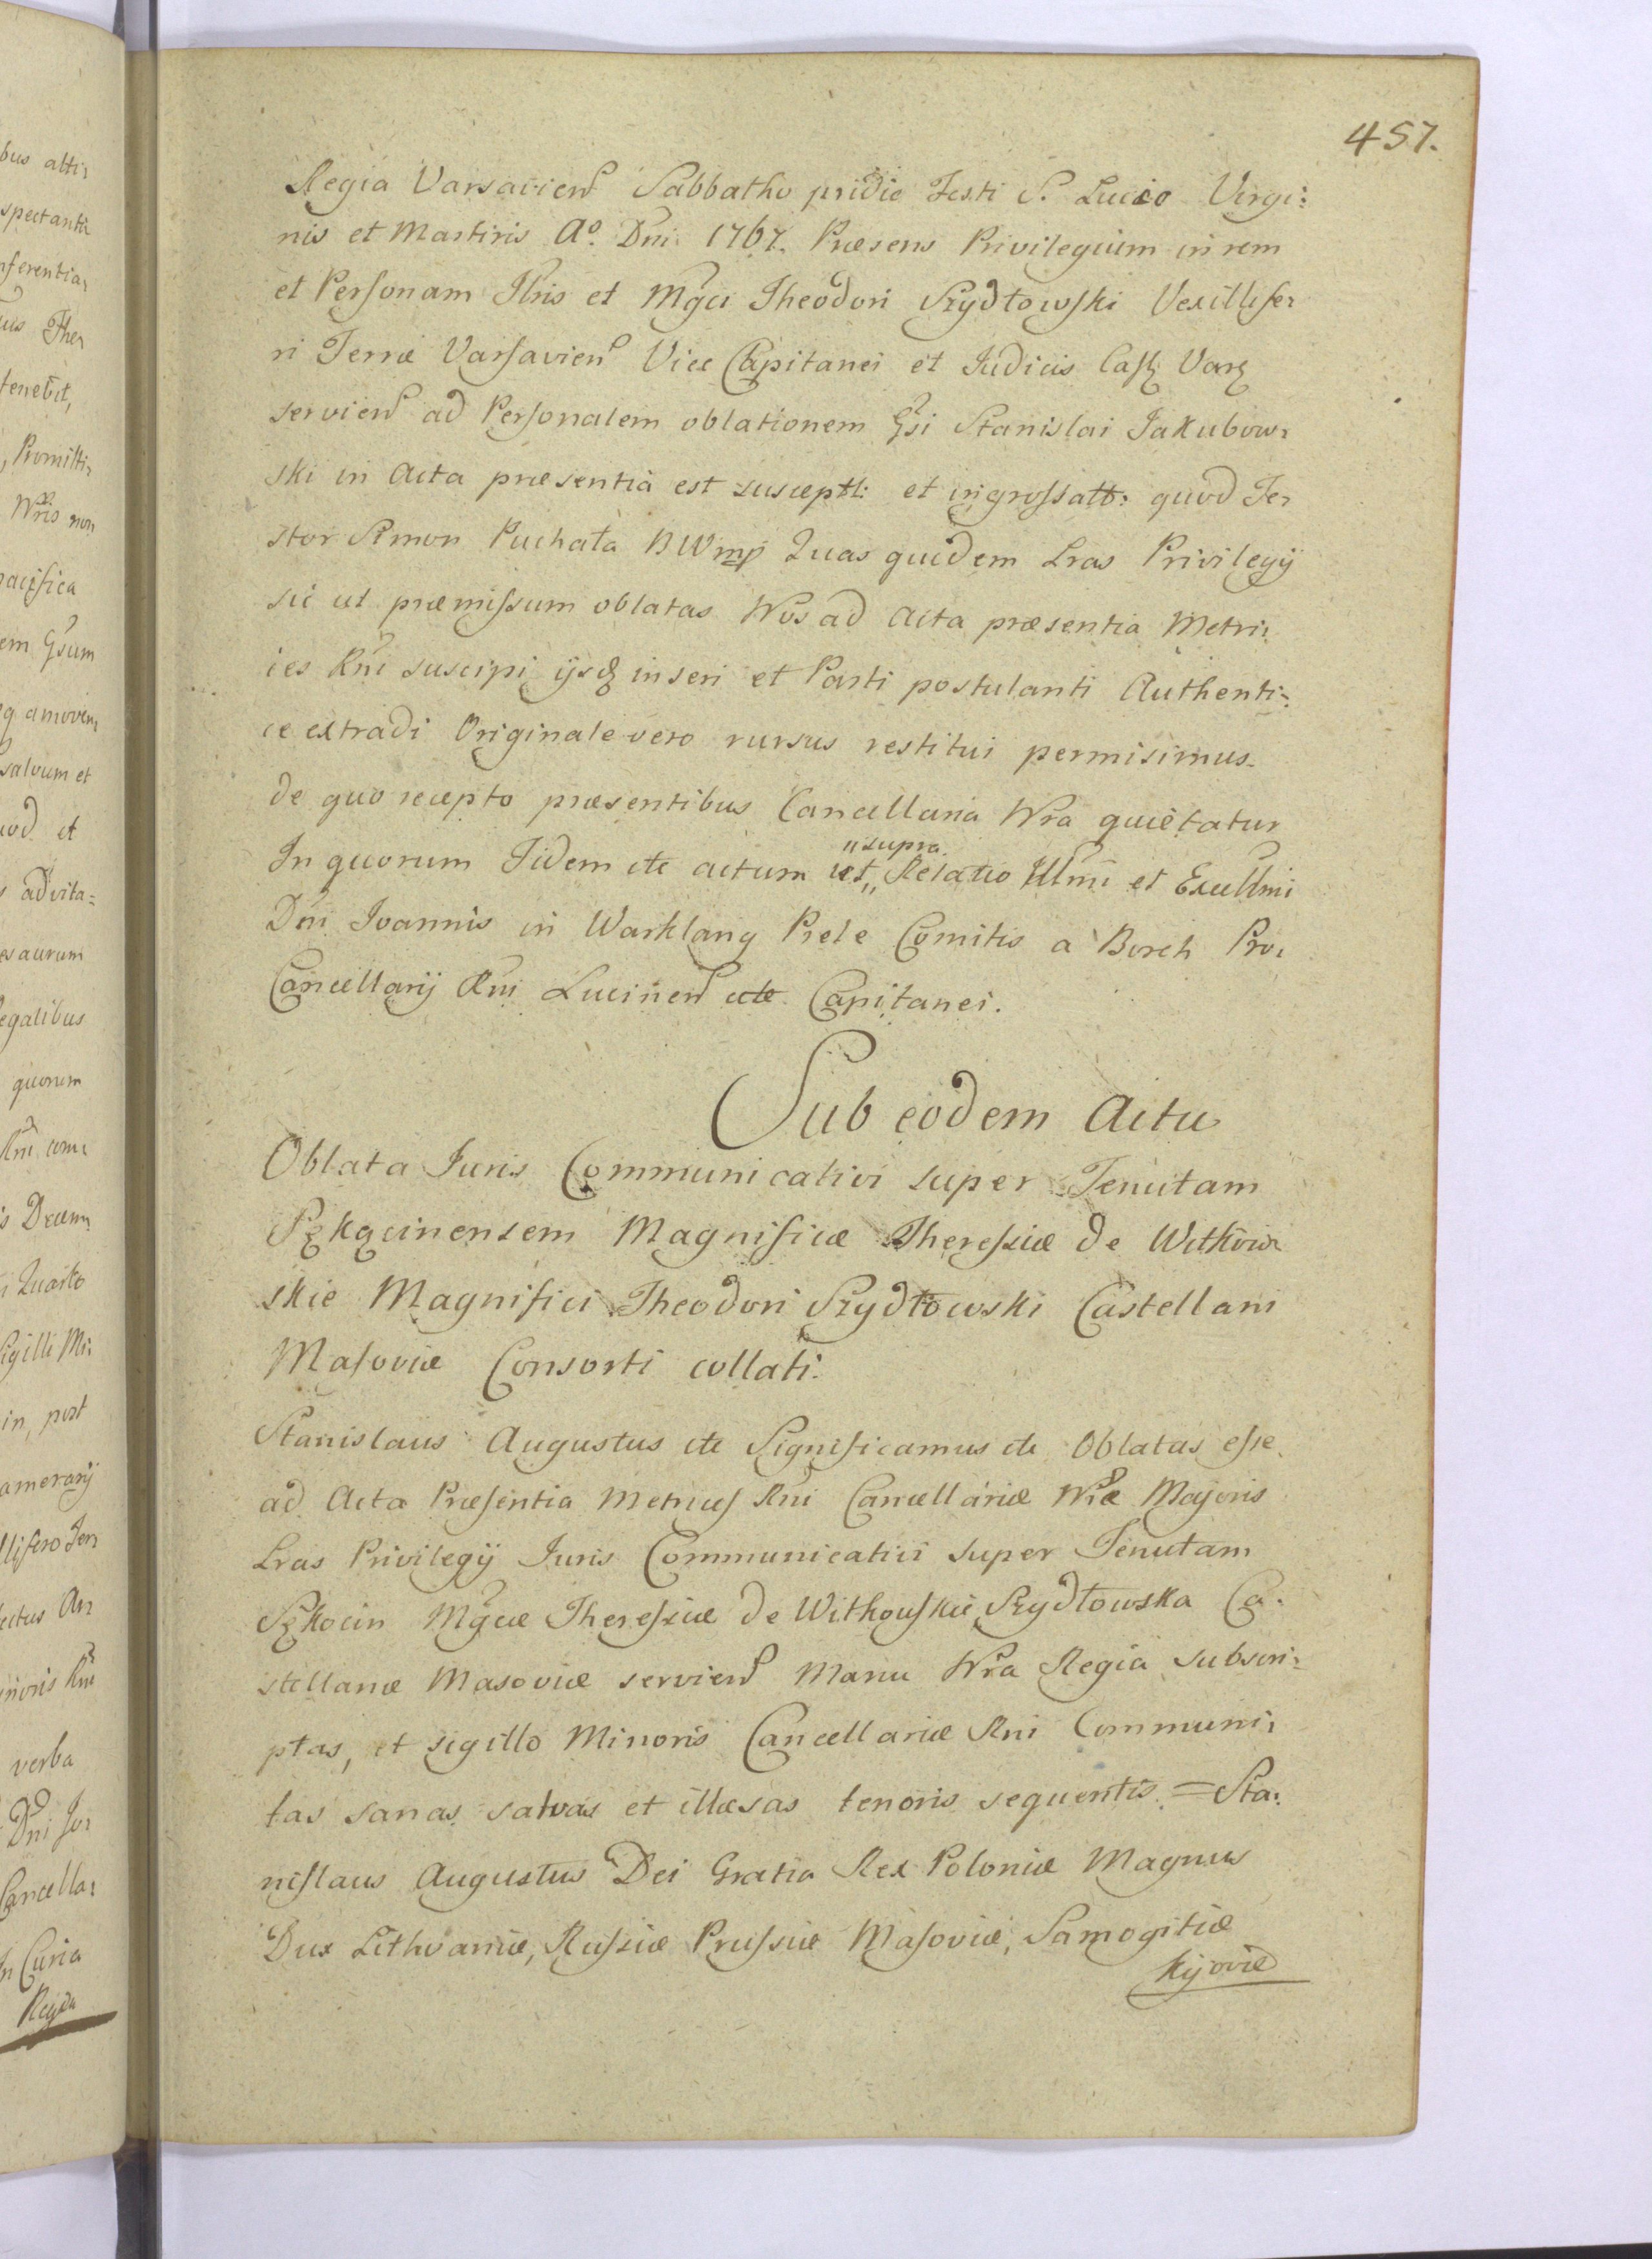 457.
Regia Varsavien Sabbatho pridie Festi S. Lucio Virgi:
nis et Martiris Aº. Dni 1767. Præsens Privilegium in rem
et Personam Illris et Mgci Theodori Szydłowski Vexillife:
ri Terræ Varsavien Vice Capitanei et Judicis Casz Varz
servien ad Personalem oblationem Gsi Stanislai Jakubow:
ski in Acta præsentia est susceptt: et ingrossatt: quod Te:
stor Simon Puchała BW mp Quas quidem Lras Privilegij
sic ut præmissum oblatas Nos ad Acta præsentia Metri:
ces Rni suscipi ijsq inseri et Parti postulanti Authenti:
ce extradi Originale vero rursus restitui permisimus.
de quo recepto præsentibus Cancellaria Nra quietatur
In quorum Fidem etc actum ut „supra. Relatio Illmi et Excellmi
Dni Joannis in Warklang Prele Comitis a Borch Pro:
Cancellarij Rni Lucinen etc Capitanei.
Sub eodem Actu
Oblata Juris Communicativi super Tenutam
Szkocinensem Magnificæ Theressiæ de Witkow:
skie Magnifici Theodori Szydłowski Castellani
Masoviæ Consorti collati.
Stanislaus Augustus etc Significamus etc Oblatas esse
ad Acta Præsentia Metrices Rni Cancellariæ Nræ Majoris
Lras Privilegij Juris Communicativi super Tenutam
Szkocin Mgcæ Theressiæ de Witkouskie Szydłowska Ca:
stellanæ Masoviæ servien Manu Nra Regia subscri:
ptas, et sigillo Minoris Cancellariæ Rni Communi:
tas sanas salvas et illæsas tenoris sequentis = Sta:
nislaus Augustus Dei Gratia Rex Poloniæ Magnus
Dux Lithvaniæ, Russiæ Prussiæ Masoviæ, Samogitiæ
Kijoviæ